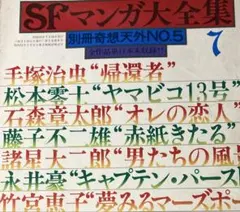 SFマンガ大全集
別冊奇想天外NO.5
全作品単行本未収録!!
7
手塚治虫“帰還者”
松本零士“ヤマビコ13号”
石森章太郎“オレの恋人”
藤子不二雄“赤紙きたる”
諸星大二郎“男たちの風景
永井豪“キャプテン・パース
竹宮恵子“夢みるマーズポー